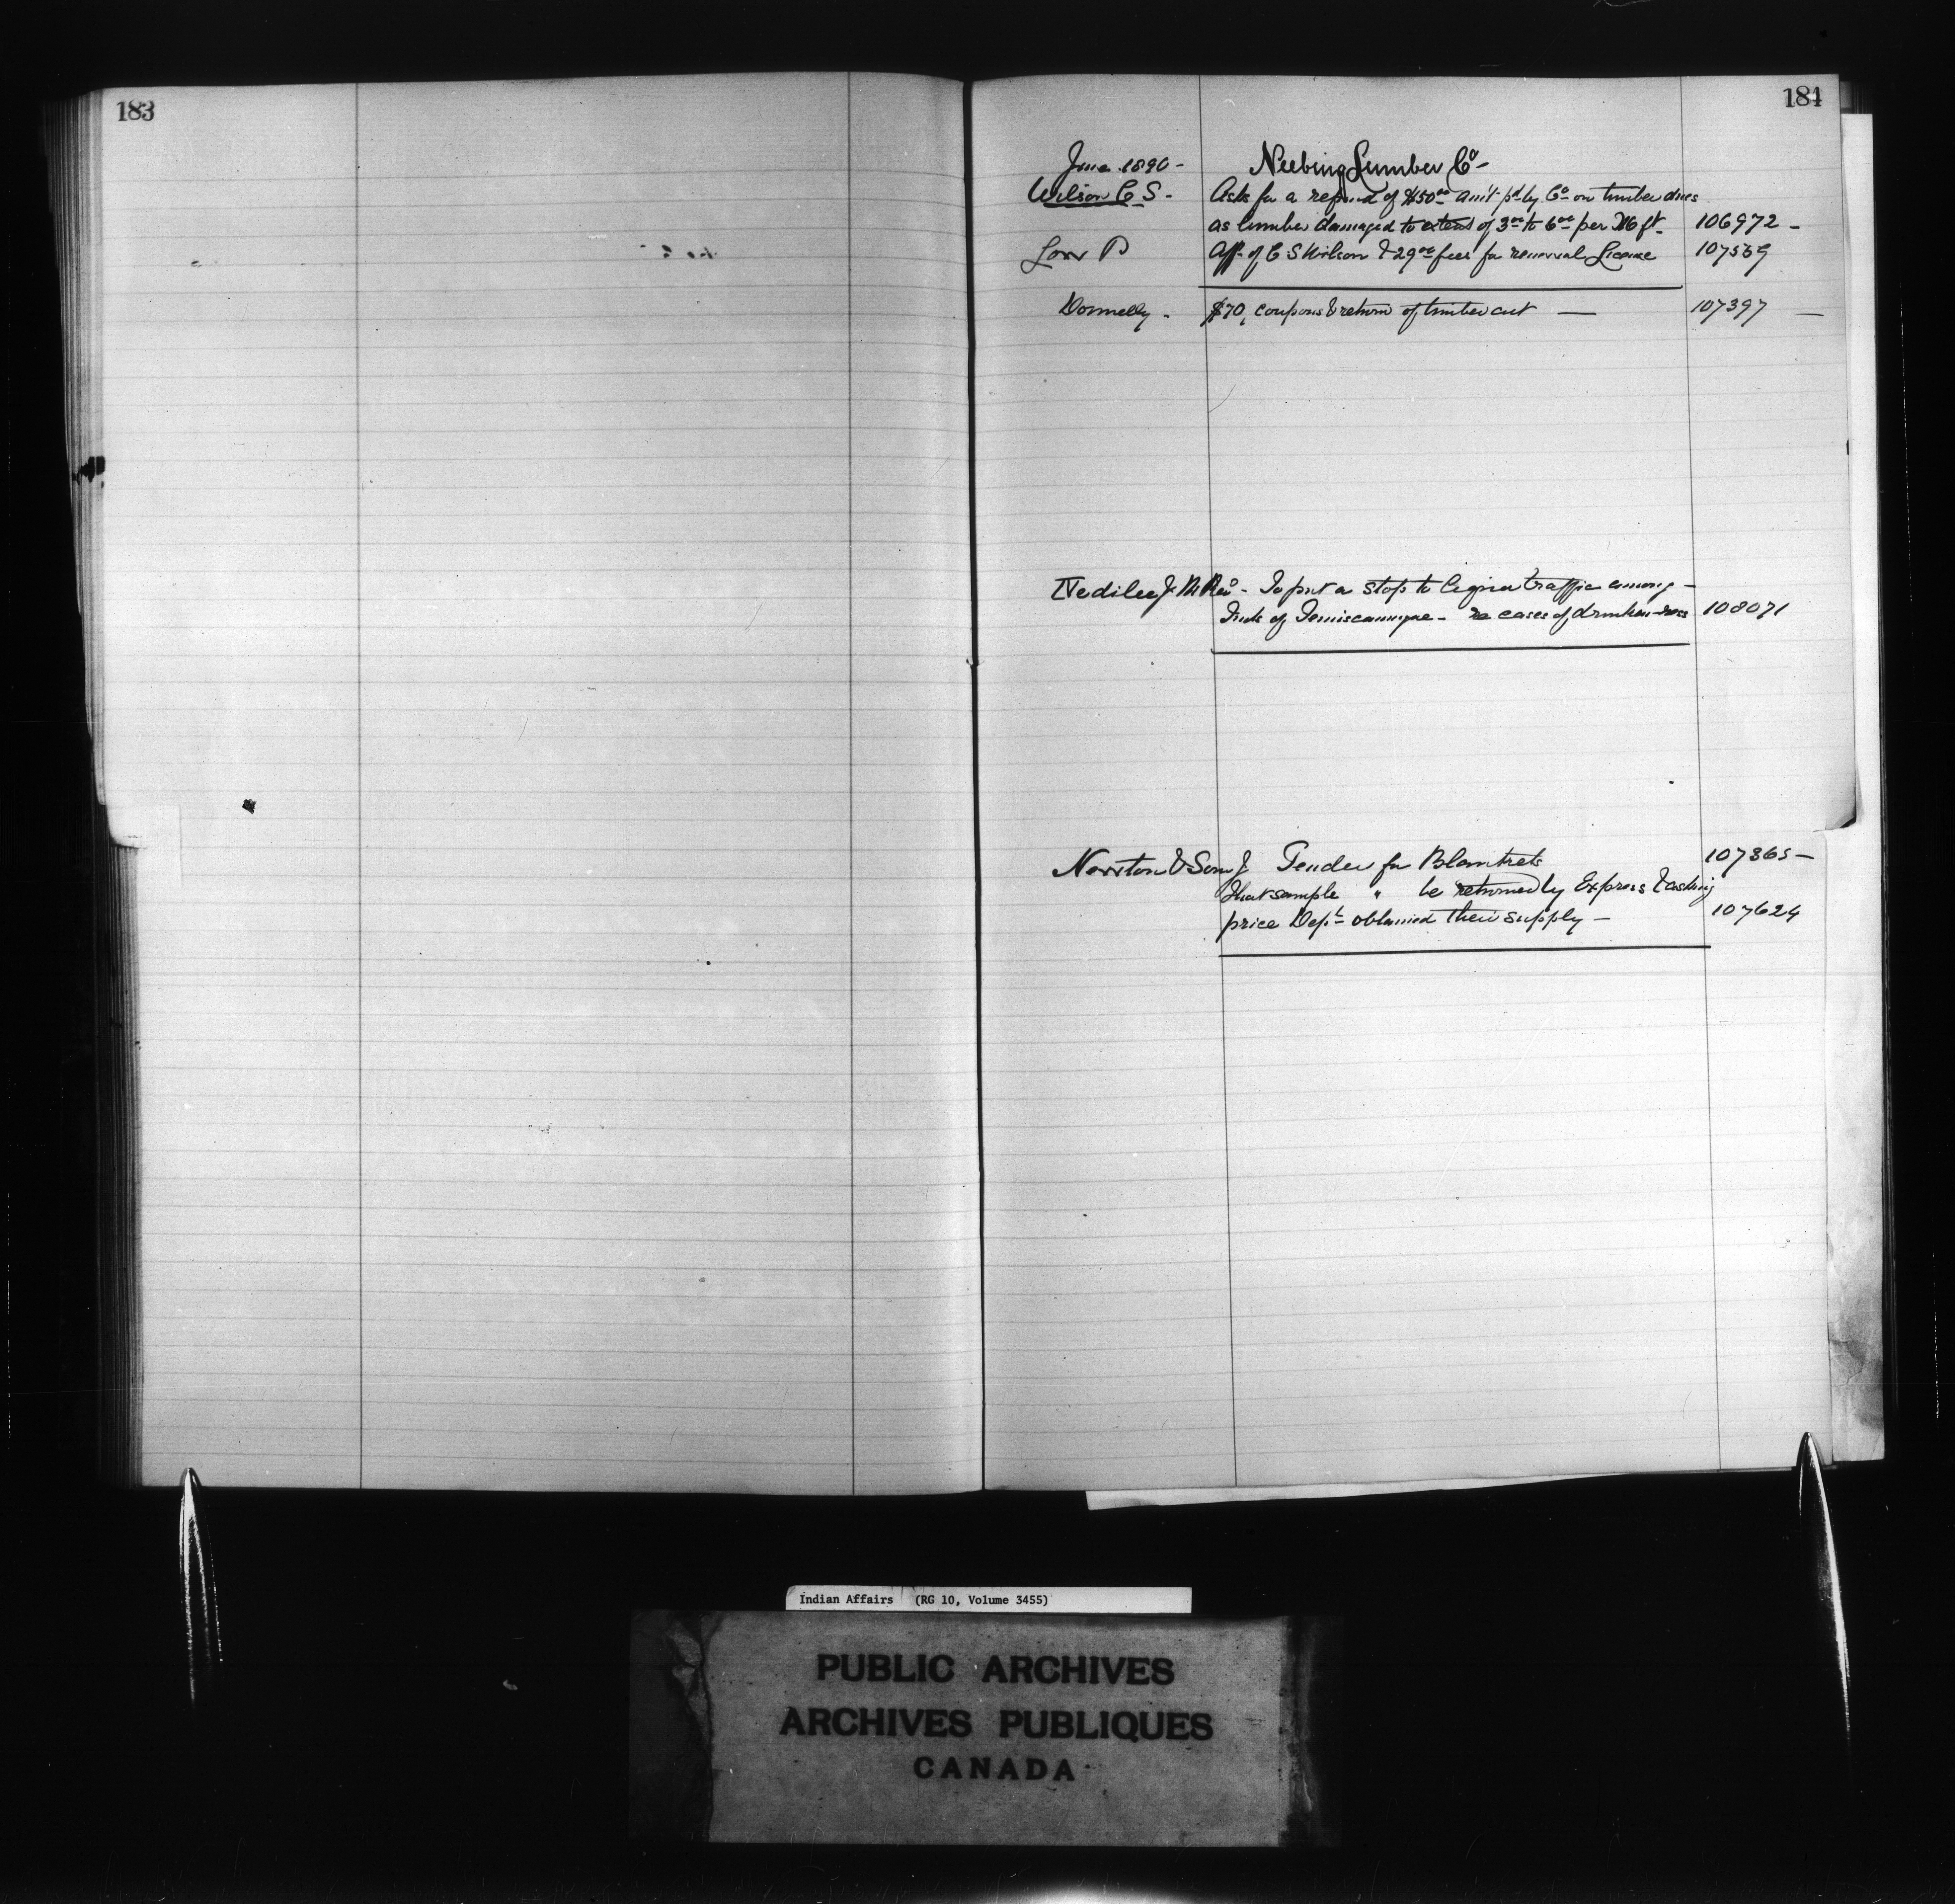 183
184
June 1890 -
Neebing Lumber Co -
Wilson C S -
Asks for a refund of $50.00 am't pd by Co on timber dues
as lumber damaged to extent of 3.00 to 6.00 per M ft - 106972 -
Low P
Aff. of C S Wilson & 29.00 fees for renewal License 107569
Donnelly - $70, coupons & return of timber cut — 107397 —
Nedilec J. M Revd - To put a stop to liquor traffic among -
Inds of Temiscamingue - re cases of drunkenness 108071
Norton & Son J Tender for Blankets 107365 -
That sample " be returned by Express & asking
price Dept obtained their supply - 107624
Indian Affairs (RG 10, Volume 3455)
PUBLIC ARCHIVES
ARCHIVES PUBLIQUES
CANADA